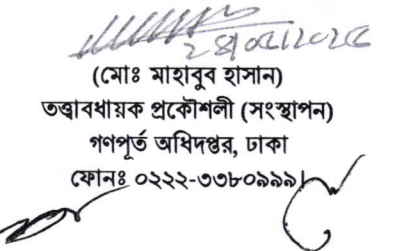 (মোঃ মাহাবুব হাসান)
তত্ত্বাবধায়ক প্রকৌশলী (সংস্থাপন)
গণপূর্ত অধিদপ্তর, ঢাকা
ফোনঃ ০২২২-৩৩৮০৯৯৯।